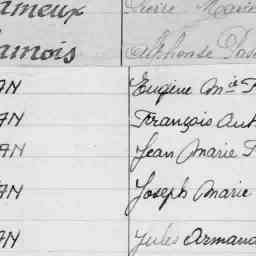 ameux Pierre Marie
amois Alphonse Pas
AN Eugène Mie F
AN François Aut
AN Jean Marie F
AN Joseph Marie
AN Jules Armand